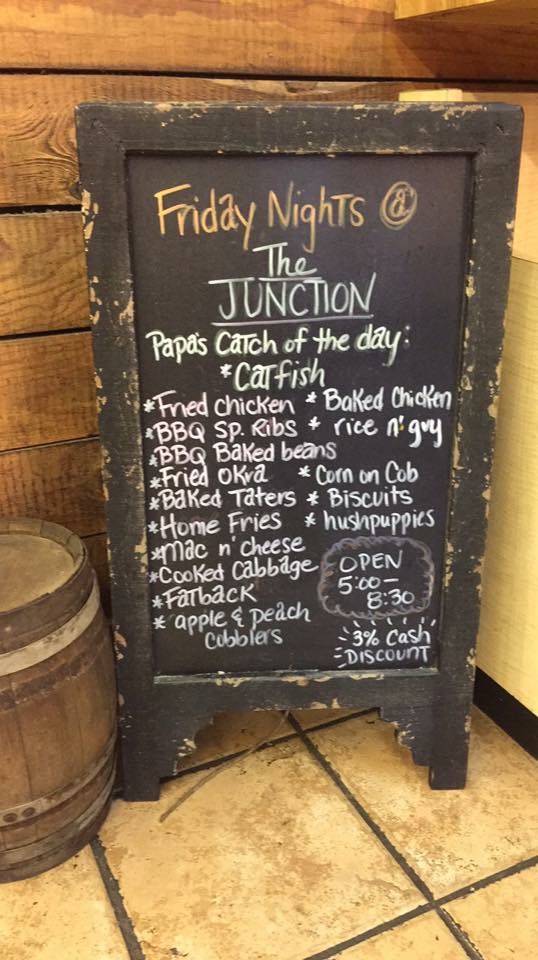 Friday Nights @
The
JUNCTION
Papa's Catch of the day:
*Catfish
*Fried Chicken * Baked Chicken
*BBQ Sp. Ribs * rice n' gvy
*BBQ Baked beans
*Fried Okra * Corn on Cob
*Baked Taters * Biscuits
*Home Fries * hushpuppies
*Mac n' cheese
*Cooked Cabbage
*Fatback
* apple & peach
cobblers
OPEN
5:00-
8:30
3% Cash
DISCOUNT